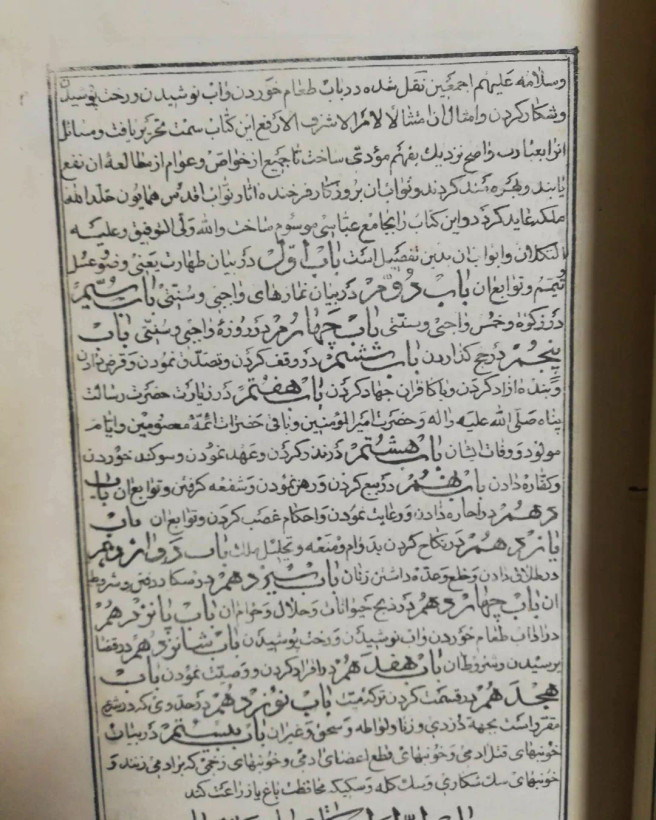 وسلامه علیهم اجمعین نقل شده در باب طعام خوردن و اب نوشیدن و رخت پوشیدن
و شکار کردن و امثال ان امتثالا لامره الاشرف الارفع این کتاب سمت تحریر یافت و مسائل
انرا بعبارت واضح نزدیک بفهم مؤدی ساخت تا جمیع از خواص و عوام از مطالعه ان نفع
یابند و بهره مند کردند و ثواب ان بروزکار فرخنده اثار نواب اقدس همایون خلد الله
ملکه عاید کردد و این کتاب را بجامع عباسی موسوم ساخت والله ولی التوفیق و علیه
التکلان و ابواب ان بدین تفصیل است باب اول در بیان طهارت یعنی وضو و غسل
و تیمم و توابع ان باب دوم در بیان نمازهای واجبی و سنتی باب سیم
در زکوة و خمس واجبی و سنتی باب چهارم در روزهٔ واجبی و سنتی باب
پنجم در حج کذاردن باب ششم در وقف کردن و تصدق نمودن و قرض دادن
و بنده ازاد کردن و با کافران جهاد کردن باب هفتم در زیارت حضرت رسالت
پناه صلی الله علیه و اله و حضرت امیر المؤمنین و باقی حضرات ائمهٔ معصومین و ایام
مولود و وفات ایشان باب هشتم در نذر کردن و عهد نمودن و سوکند خوردن
و کفاره دادن باب نهم در بیع کردن و رهن نمودن و شفعه کرفتن و توابع ان باب
دهم در اجاره دادن و رعایت نمودن و احکام غصب کردن و توابع ان باب
یازدهم در نکاح کردن بدوام و متعه و تحلیل ملک باب دوازدهم
در طلاق دادن و خلع و عده داشتن زنان باب سیزدهم در شکار رفتن و شروط
ان باب چهاردهم در ذبح حیوانات و حلال و حرام ان باب پانزدهم
در اداب طعام خوردن و اب نوشیدن و رخت پوشیدن باب شانزدهم در قضا
پرسیدن و شروط ان باب هفدهم در اقرار کردن و وصیت نمودن باب
هجدهم در قسمت کردن ترکه میت باب نوزدهم در حدودی که در شرع
مقرر است بجهة دزدی و زنا و لواطه و سحق و غیر ان باب بیستم در بیان
خونبهای قتل ادمی و خونبهای قطع اعضای ادمی و خونبهای زخمی که بر ادمی زنند و
خونبهای سک شکاری و سک کله و سکیکه محافظت باغ یا زراعت کند